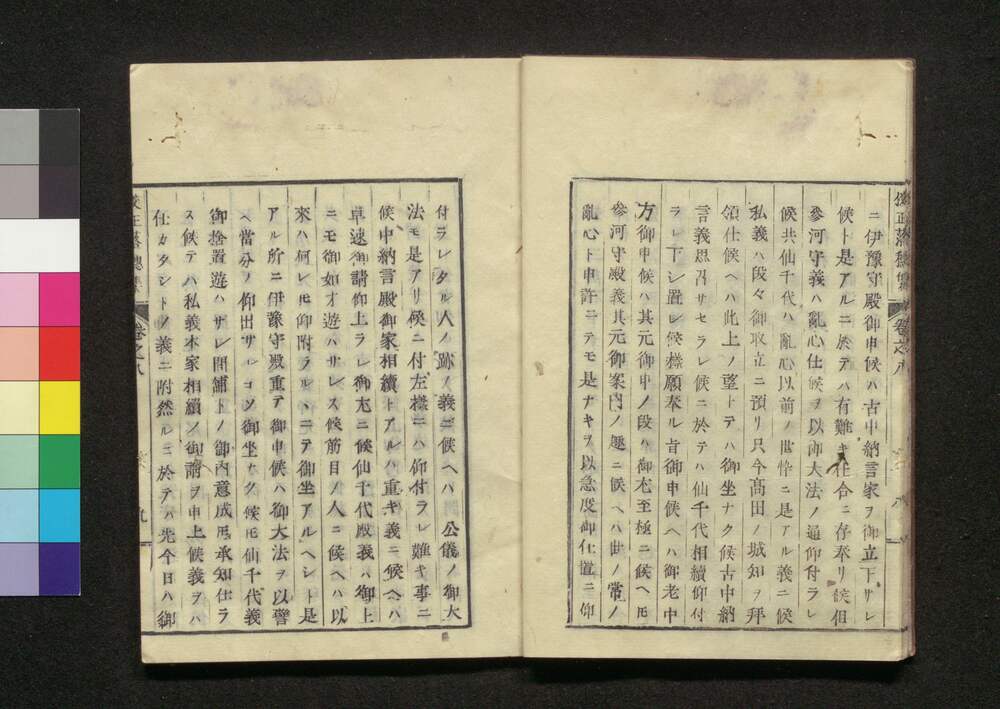 ニ伊豫守殿御申候ハ古中納言家ヲ御立下サレ
候ト是アルニ於テハ有難キ仕合ニ存奉リ候但
參河守義ハ亂心仕候ヲ以御大法ノ通仰付ラレ
候共仙千代ハ亂心以前ノ世悴ニ是アル義ニ候
私義ハ段々御取立ニ預リ只今髙田ノ城知ヲ拜
領仕候ヘハ此上ノ望トテハ御坐ナク候古中納
言義思召サセラレ候ニ於テハ仙千代相續仰付
ラレ下シ置レ候樣願奉ル旨御申候ヘハ御老中
方御申候ハ其元御申ノ段ハ御尤至極ニ候ヘ𪜈
參河守殿義其元御案内ノ趣ニ候ヘハ世ノ常ノ
亂心ト申許ニテモ是ナキヲ以急度御仕置ニ仰
卷之八
八
付ラレタル人ノ跡ノ義ニ候ヘハ 公儀ノ御大
法モ是アリ候ニ付左樣ニハ仰付ラレ難キ事ニ
候中納言殿御家相續トアルハ重キ義ニ候ヘハ
早速御請仰上ラレ御尤ニ候仙千代殿義ハ御上
ニモ御如才遊ハサレス候筋目ノ人ニ候ヘハ以
來ハ何レ𪜈仰附ラルヽニテ御坐アルヘシト是
アル所ニ伊豫守殿重テ御申候ハ御大法ヲ以警
ヘ當分ノ仰出サレコソ御坐ナク候𪜈仙千代義
御捨置遊ハサレ間鋪トノ御內意成𪜈承知仕ラ
ス候テハ私義本家相續ノ御請ヲ申上候義ヲハ
仕カタシトノ義ニ附然ルニ於テハ先今日ハ御
卷之八
九